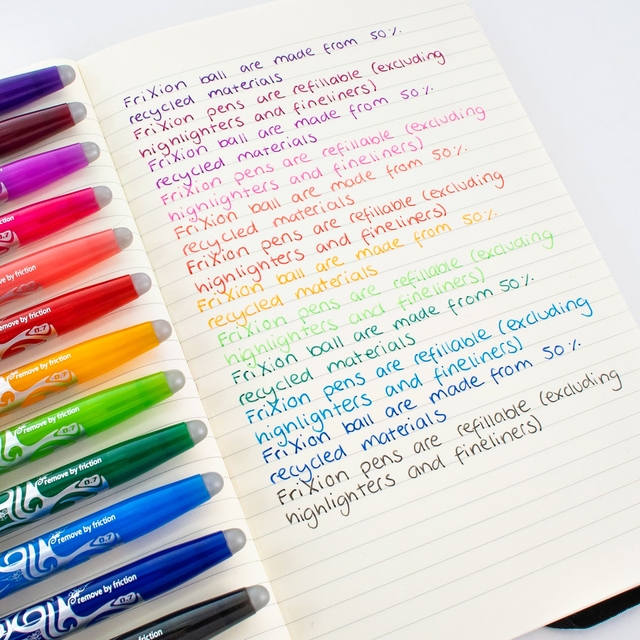 FriXion ball are made from 50%
recycled materials
FriXion pens are refillable (excluding
highlighters and fineliners)
FriXion ball are made from 50%
recycled materials
FriXion pens are refillable (excluding
highlighters and fineliners)
FriXion ball are made from 50%
recycled materials
FriXion pens are refillable (excluding
highlighters and fineliners)
FriXion ball are made from 50%
recycled materials
FriXion pens are refillable (excluding
highlighters and fineliners)
FriXion ball are made from 50%
recycled materials
FriXion pens are refillable (excluding
highlighters and fineliners)
FriXion ball are made from 50%
recycled materials
FriXion pens are refillable (excluding
highlighters and fineliners)
friction
remove by friction
remove by friction
0.7
remove by friction
remove by friction
0.7
remove by friction
0.7
remove by friction
0.7
remove by friction
0.7
remove by friction